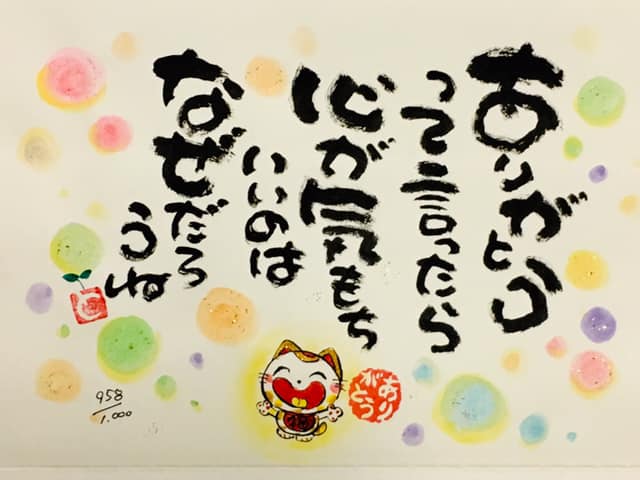 ありがとう
って言ったら
心が気もち
いいのは
なぜだろ
うね
ありがとう
958/1.000